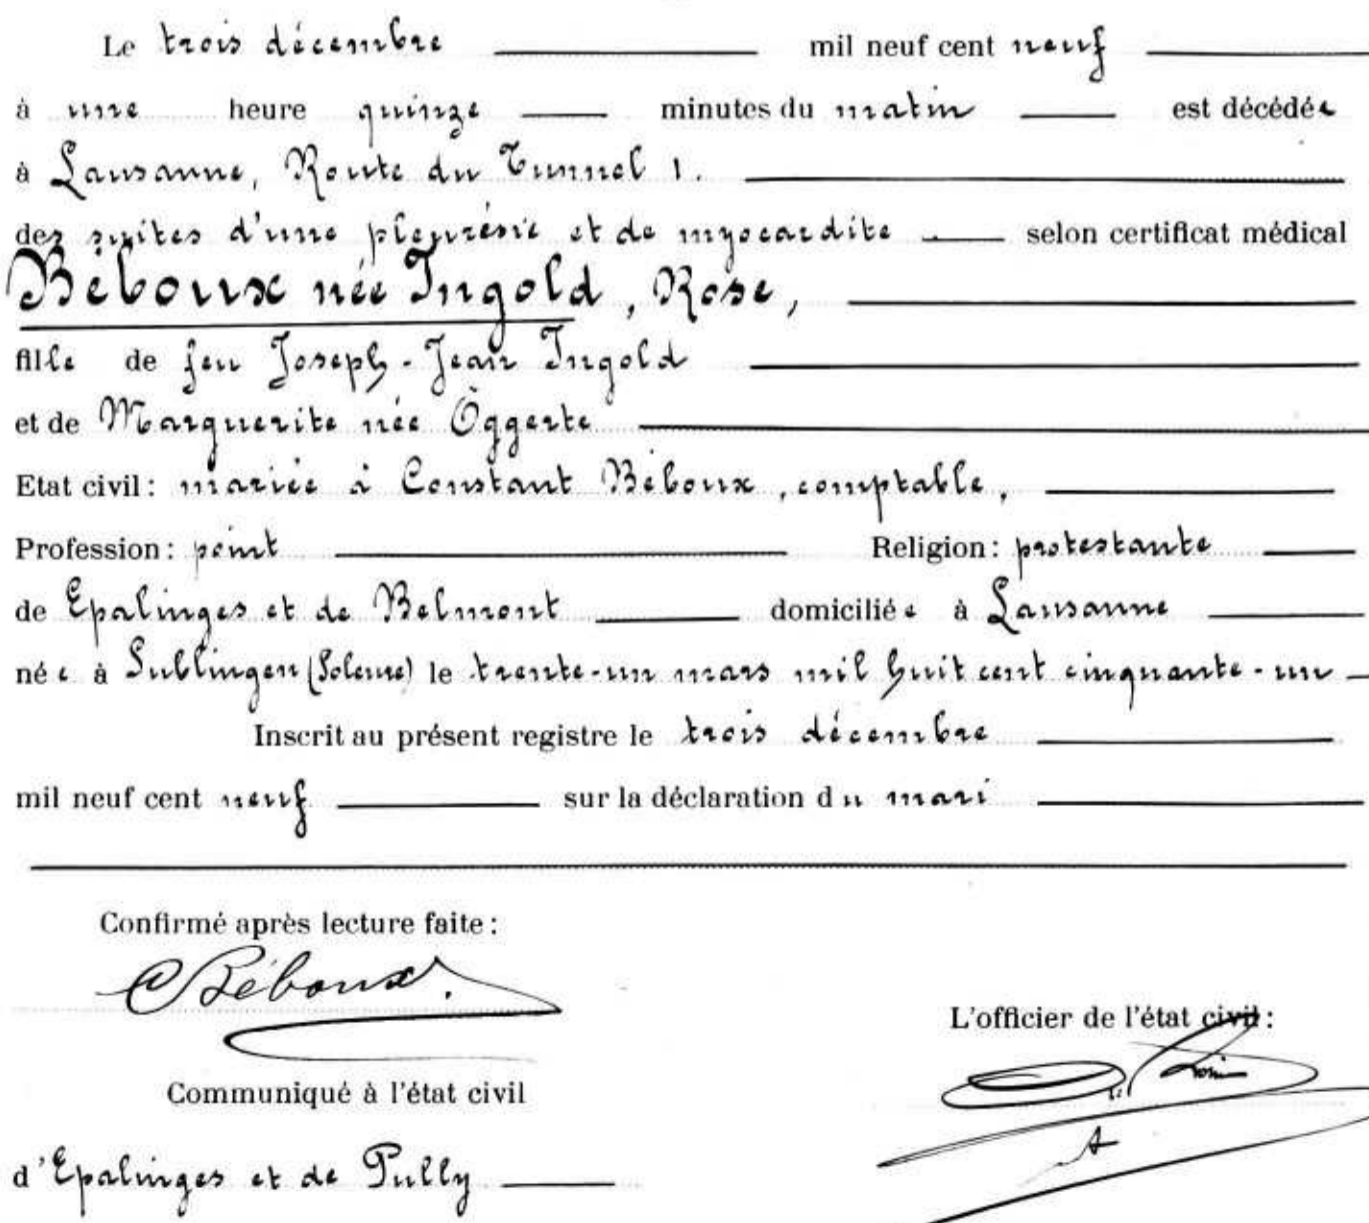 Le trois décembre mil neuf cent neuf
à une heure quinze minutes du matin est décédée
à Lausanne, Route du Tunnel 1.
des suites d'une pleurésie et de myocardite selon certificat médical
Béboux née Ingold, Rose,
fille de feu Joseph-Jean Ingold
et de Marguerite née Öggerte
Etat civil: mariée à Constant Béboux, comptable,
Profession: point Religion: protestante
de Epalinges et de Belmont domiciliée à Lausanne
née à Sublingen (Soleure) le trente-un mars mil huit cent cinquante-un
Inscrit au présent registre le trois décembre
mil neuf cent neuf sur la déclaration du mari
Confirmé après lecture faite:
C Béboux.
L'officier de l'état civil:
Communiqué à l'état civil
d'Epalinges et de Pully